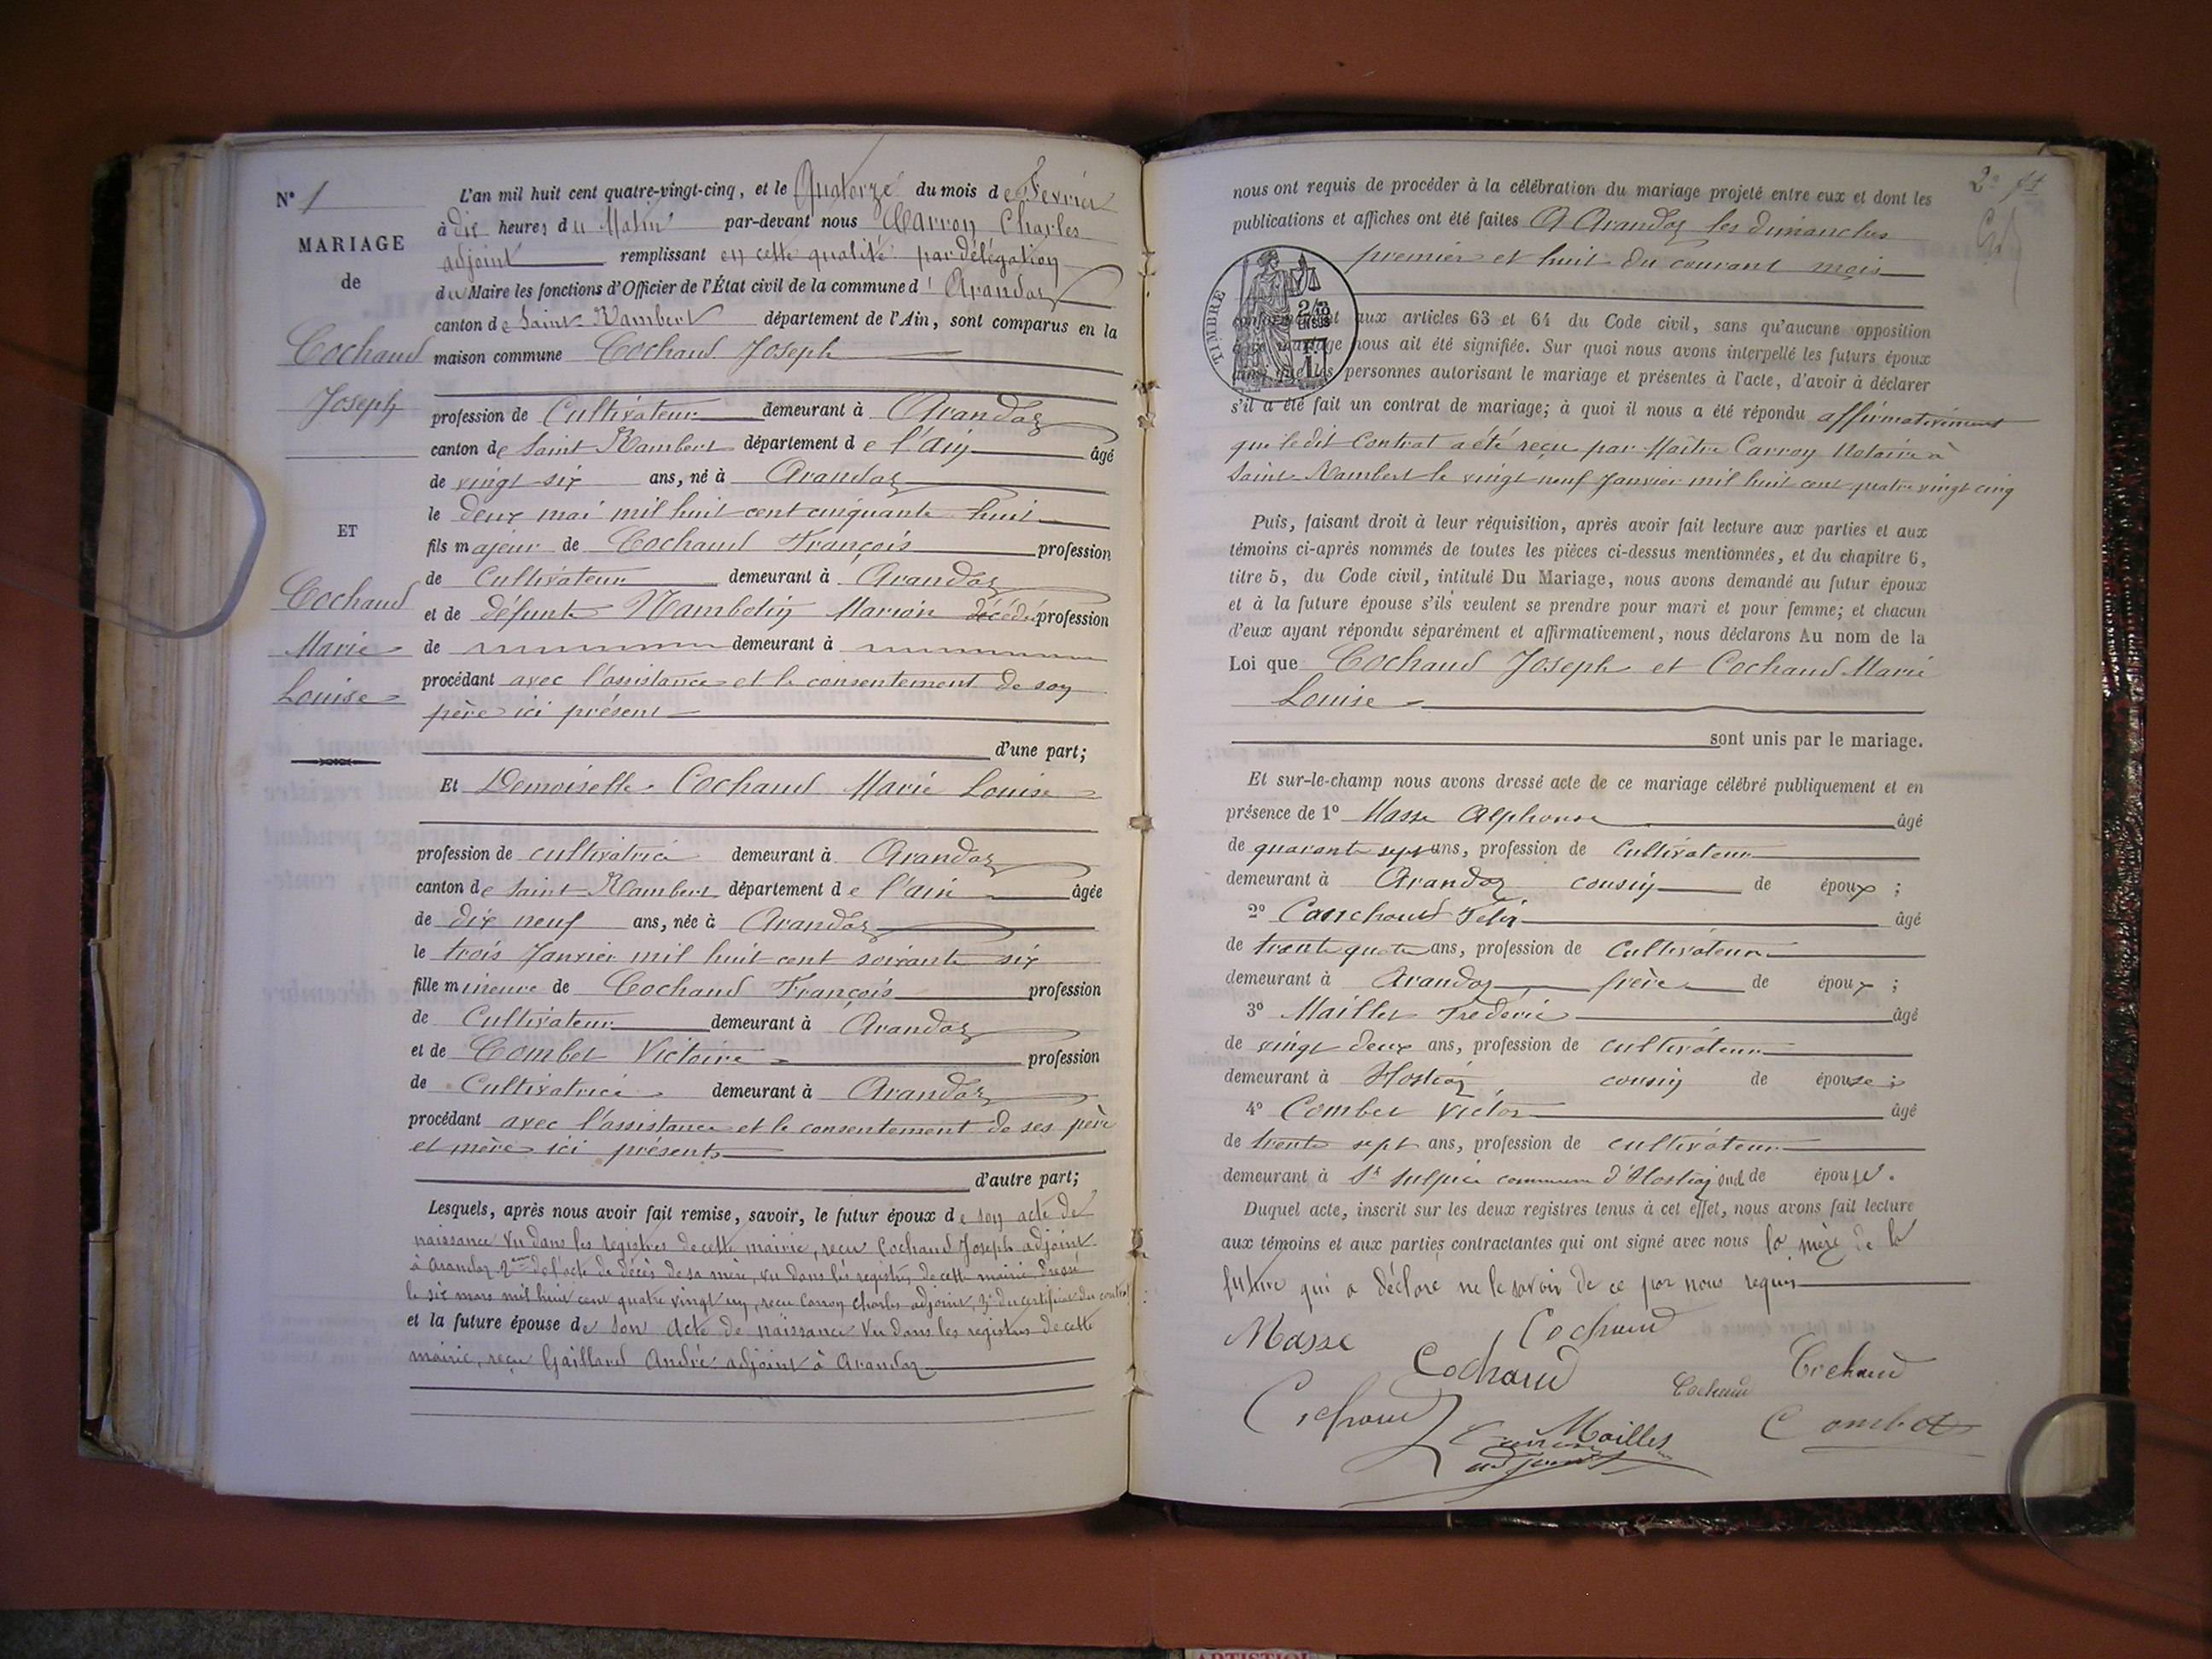 N° 1
MARIAGE
de
Cochaud
Joseph
ET
Cochaud
Marie
Louise
L'an mil huit cent quatre-vingt-cinq, et le Quatorze du mois de Fevrier
à dix heures du Matin par-devant nous Carron Charles
adjoint remplissant en cette qualité par délégation
du Maire les fonctions d'Officier de l'État civil de la commune d'Arandaz
canton de Saint-Rambert département de l'Ain, sont comparus en la
maison commune Cochaud Joseph
profession de Cultivateur demeurant à Arandaz
canton de Saint Rambert département de l'Ain âgé
de vingt-six ans, né à Arandaz
le deux mai mil huit cent cinquante huit
fils majeur de Cochaud François profession
de Cultivateur demeurant à Arandaz
et de défunte Marion décédé profession
de demeurant à
procédant avec l'assistance et le consentement de son
père ici présent
d'une part;
Et Demoiselle Cochaud Marie Louise
profession de cultivatrice demeurant à Arandaz
canton de Saint-Rambert département de l'ain âgée
de dix neuf ans, née à Arandaz
le trois Janvier mil huit cent soixante six
fille mineure de Cochaud François profession
de Cultivateur demeurant à Arandaz
et de Combet Victoire profession
de Cultivatrice demeurant à Arandaz
procédant avec l'assistance et le consentement de ses père
et mère ici présents
d'autre part;
Lesquels, après nous avoir fait remise, savoir, le futur époux de son acte de
naissance vu dans les registres de cette mairie, reçu Cochaud Joseph adjoint
à Arandaz 2ent de l'acte de décès de sa mère, vu dans les registres de cette mairie dressé
le six mars mil huit cent quatre vingt un, reçu Carron Charles adjoint, 3° du certificat du contrat
et la future épouse de son acte de naissance vu dans les registres de cette
mairie, reçu Gaillard André adjoint à Arandaz
2e ft
nous ont requis de procéder à la célébration du mariage projeté entre eux et dont les
publications et affiches ont été faites A Arandaz les dimanches
premier et huit du courant mois
TIMBRE
conformément aux articles 63 et 64 du Code civil, sans qu'aucune opposition
à ce mariage nous ait été signifiée. Sur quoi nous avons interpellé les futurs époux
ainsi que les personnes autorisant le mariage et présentes à l'acte, d'avoir à déclarer
s'il a été fait un contrat de mariage; à quoi il nous a été répondu affirmativement
que ledit Contrat a été reçu par Maître Carron Notaire à
Saint-Rambert le vingt neuf Janvier mil huit cent quatre vingt cinq
Puis, faisant droit à leur réquisition, après avoir fait lecture aux parties et aux
témoins ci-après nommés de toutes les pièces ci-dessus mentionnées, et du chapitre 6,
titre 5, du Code civil, intitulé Du Mariage, nous avons demandé au futur époux
et à la future épouse s'ils veulent se prendre pour mari et pour femme; et chacun
d'eux ayant répondu séparément et affirmativement, nous déclarons Au nom de la
Loi que Cochaud Joseph et Cochaud Marie
Louise
sont unis par le mariage.
Et sur-le-champ nous avons dressé acte de ce mariage célébré publiquement et en
présence de 1° Masse Alphonse âgé
de quarante sept ans, profession de Cultivateur
demeurant à Arandaz cousin de époux ;
2° Félix âgé
de trente quatre ans, profession de Cultivateur
demeurant à Arandaz frère de époux ;
3° Maillet Frédéric âgé
de vingt deux ans, profession de cultivateur
demeurant à Hostiaz cousin de épouse ;
4° Combet Victor âgé
de trente sept ans, profession de cultivateur
demeurant à St Sulpice commune d'Hostiaz oncl de épouse.
Duquel acte, inscrit sur les deux registres tenus à cet effet, nous avons fait lecture
aux témoins et aux parties contractantes qui ont signé avec nous la mère de la
future qui a déclaré ne le savoir de ce par nous requis
Masse Cochaud
Cochaud Cochaud Cochaud
Cochaud Maillet Combet
Carron
adjoint